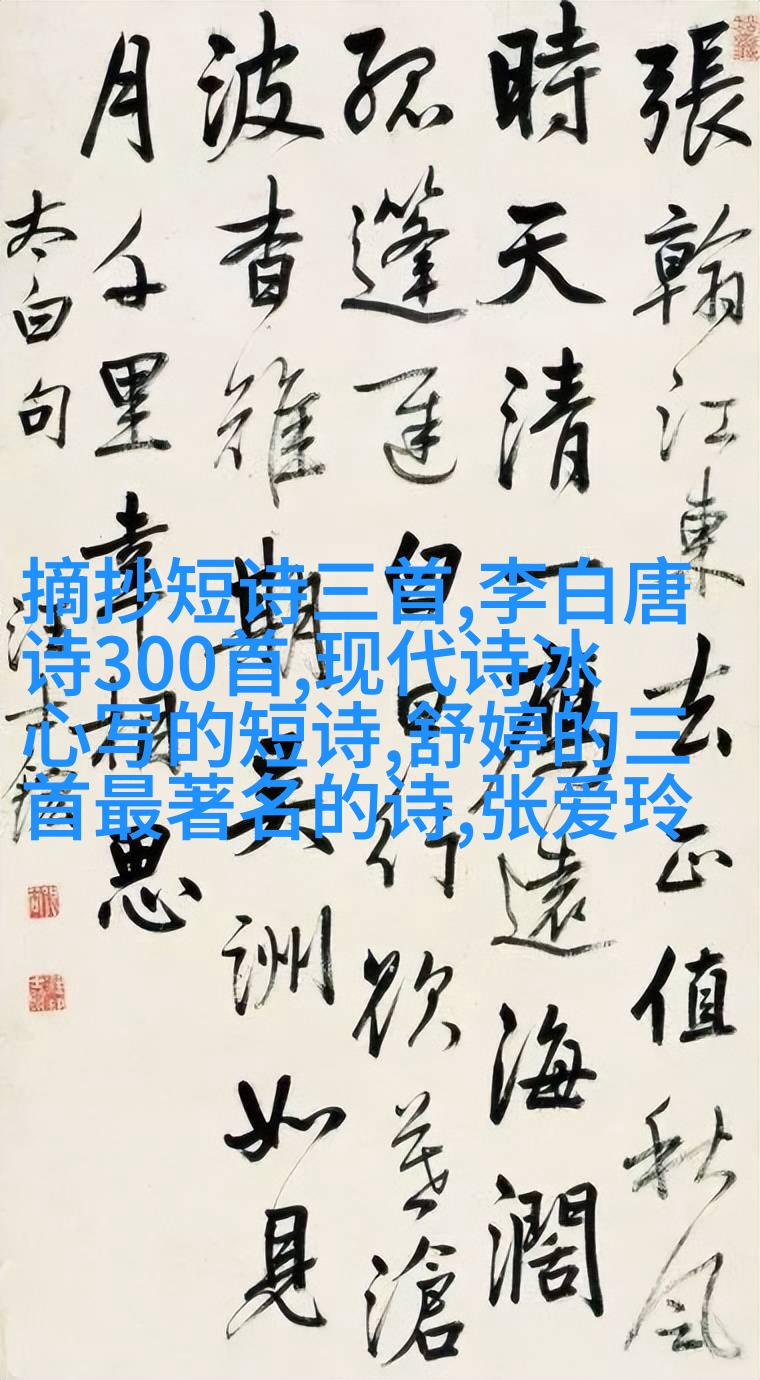 張翰江東去正值秋風
時天清一雁遠海闊
孤蓬遲白日行欲暮滄
波杳難期吳洲如見
月千里幸相思
太白句 汪士
摘抄短诗三首,李白唐
诗300首,现代诗冰
心写的短诗,舒婷的三
首最著名的诗,张爱玲